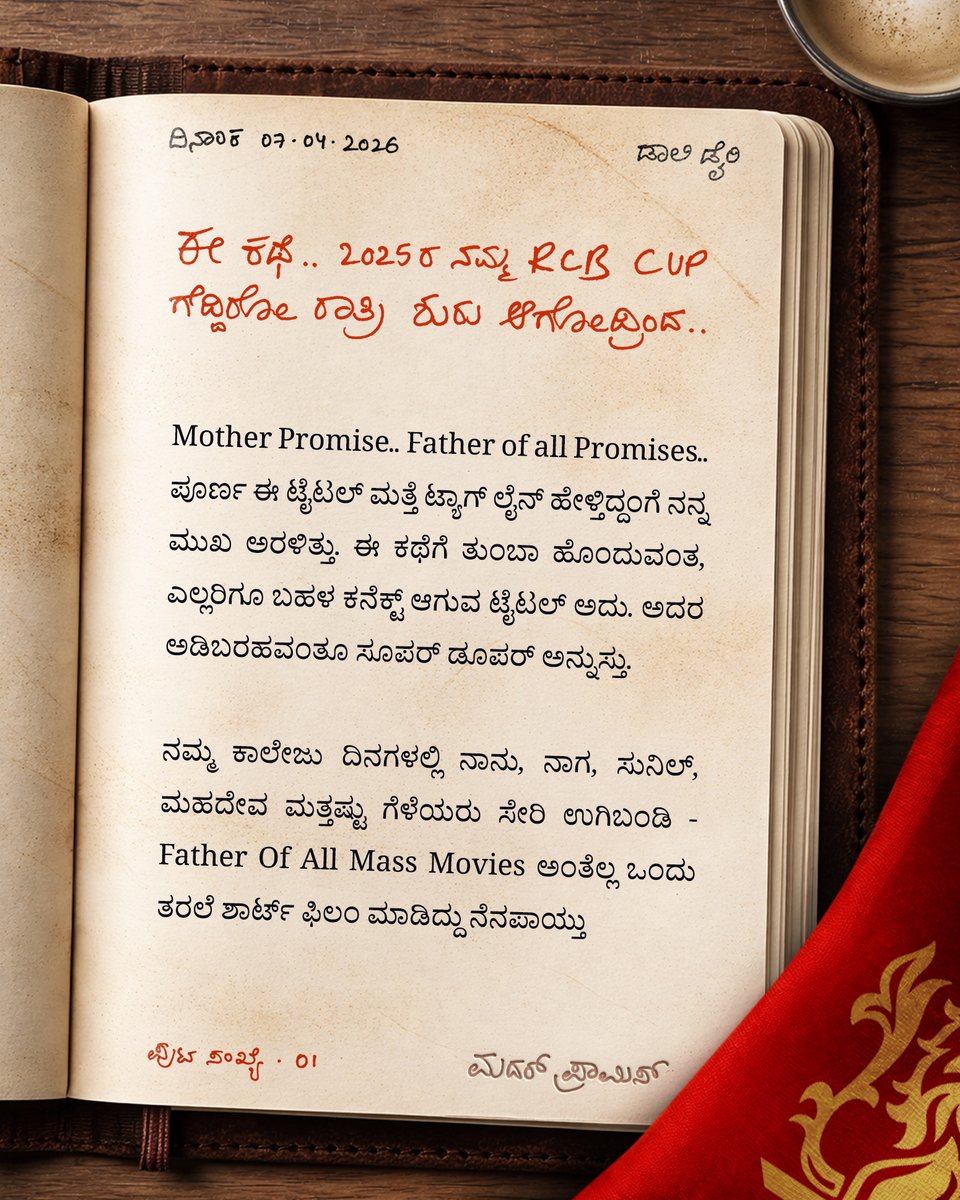 ದಿನಾಂಕ 07.04.2026
ಡಾಲಿ ಡೈರಿ
ಈ ಕಥೆ.. 2025ರ ನಮ್ಮ RCB CUP
ಗೆದ್ದಿರೋ ರಾತ್ರಿ ಶುರು ಆಗೋದ್ರಿಂದ..
Mother Promise.. Father of all Promises..
ಪೂರ್ಣ ಈ ಟೈಟಲ್ ಮತ್ತೆ ಟ್ಯಾಗ್ ಲೈನ್ ಹೇಳ್ತಿದ್ದಂಗೆ ನನ್ನ
ಮುಖ ಅರಳಿತ್ತು. ಈ ಕಥೆಗೆ ತುಂಬಾ ಹೊಂದುವಂತ,
ಎಲ್ಲರಿಗೂ ಬಹಳ ಕನೆಕ್ಟ್ ಆಗುವ ಟೈಟಲ್ ಅದು. ಅದರ
ಅಡಿಬರಹವಂತೂ ಸೂಪರ್ ಡೂಪರ್ ಅನ್ನುಸ್ತು.
ನಮ್ಮ ಕಾಲೇಜು ದಿನಗಳಲ್ಲಿ ನಾನು, ನಾಗ, ಸುನಿಲ್,
ಮಹದೇವ ಮತ್ತಷ್ಟು ಗೆಳೆಯರು ಸೇರಿ ಉಗಿಬಂಡಿ -
Father Of All Mass Movies ಅಂತೆಲ್ಲ ಒಂದು
ತರಲೆ ಶಾರ್ಟ್ ಫಿಲಂ ಮಾಡಿದ್ದು ನೆನಪಾಯ್ತು
ಪುಟ ಸಂಖ್ಯೆ · 01
ಮದರ್ ಪ್ರಾಮಿಸ್